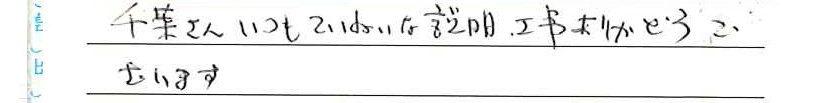 千葉さんいつもていねいな説明、工事ありがとうご
ざいます